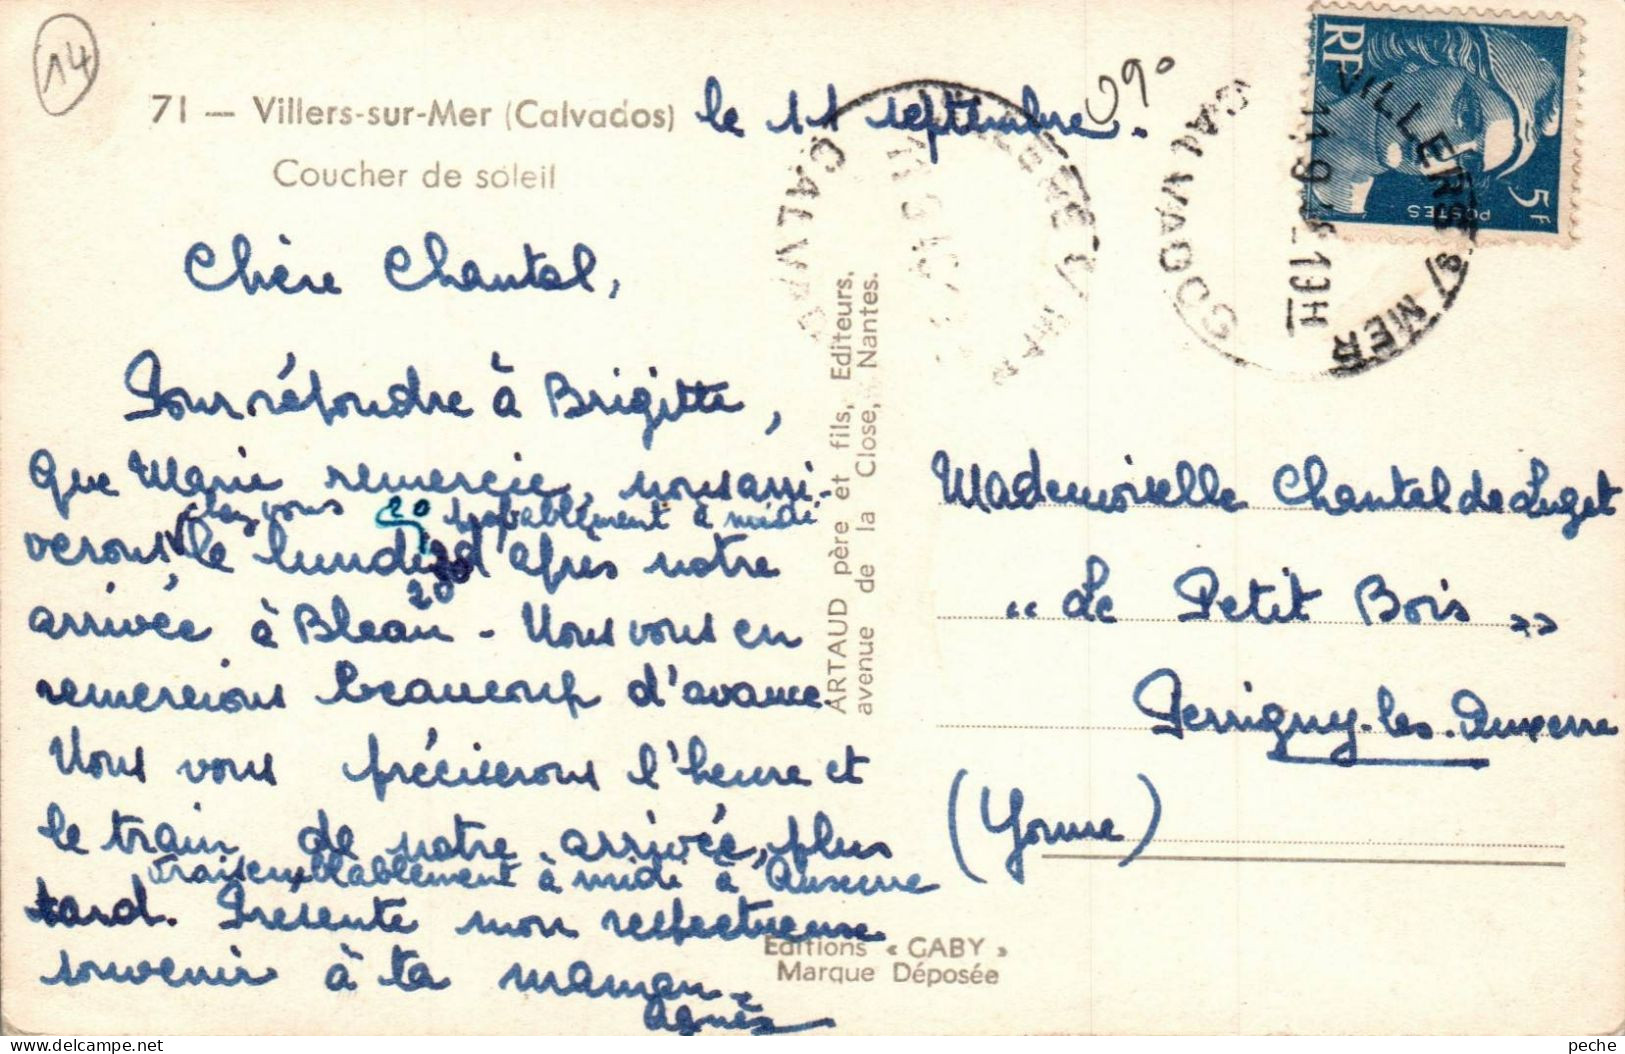 14
71 — Villers-sur-Mer (Calvados)
Coucher de soleil
le 11 septembre.
Chère Chantal,
Pour répondre à Brigitte,
que Marie remercie, nous arri-
chez vous 20 probablement à midi
verons le lundi 20 d'après notre
20
arrivée à Bleau - Nous vous en
remercions beaucoup d'avance.
Nous vous préciserons l'heure et
le train de notre arrivée, plus
vraisemblablement à midi à Auxerre
tard. Présente mon respectueuse
souvenir à ta maman -
Agnès
ARTAUD père et fils, Editeurs,
avenue de la Close, Nantes.
Editions « GABY »
Marque Déposée
RF
5f
POSTES
VILLERS S/ MER
CALVADOS
CALVADOS
Mademoiselle Chantal de Luget
" Le Petit Bois "
Perrigny-les-Auxerre
(Yonne)
peche Delcampe.net